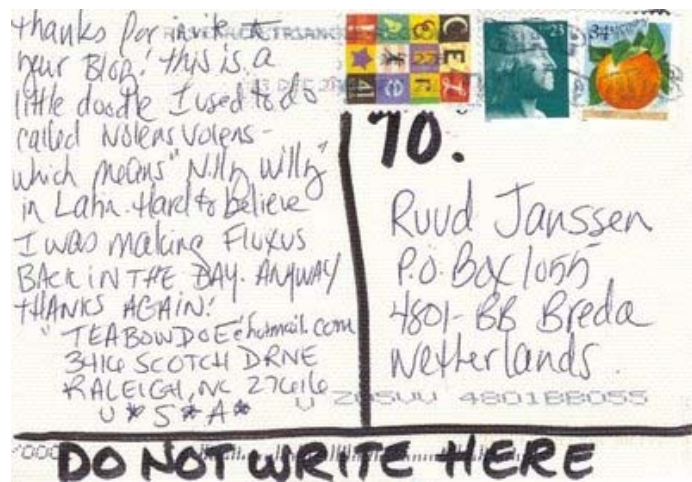 thanks for invite
your Blog! this is a
little doodle I used to do
called Nolens Volens -
which means "Nilly Willy"
in Latin. Hard to believe
I was making Fluxus
BACK IN THE DAY. ANYWAY
THANKS AGAIN!
"TEABOWDOE@hotmail.com
3416 SCOTCH DRNE
RALEIGH, NC 27616
U*S*A*
CELE
41
23
34
TO.
Ruud Janssen
P.O. Box 1055
4801-BB Breda
Netherlands.
4801BB055
DO NOT WRITE HERE